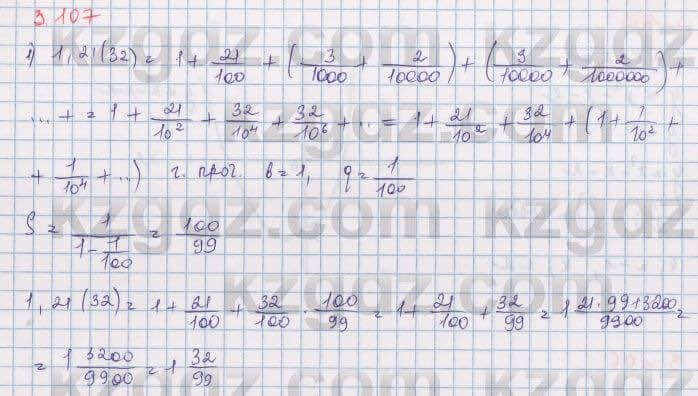 3.107
1) 1,21(32) = 1 + 21/100 + (3/1000 + 2/10000) + (3/10000 + 2/1000000) +
... + = 1 + 21/10² + 32/10⁴ + 32/10⁶ + .. = 1 + 21/10² + 32/10⁴ + (1 + 1/10² +
+ 1/10⁴ + ..) г. прог. b = 1, q = 1/100
S = 1/(1 - 1/100) = 100/99
1,21(32) = 1 + 21/100 + 32/100 · 100/99 = 1 + 21/100 + 32/99 = 1 21·99+3200/9900 =
= 1 3200/9900 = 1 32/99
kzgdz.com
kzgdz.com
kzgdz.com
kzgdz.com